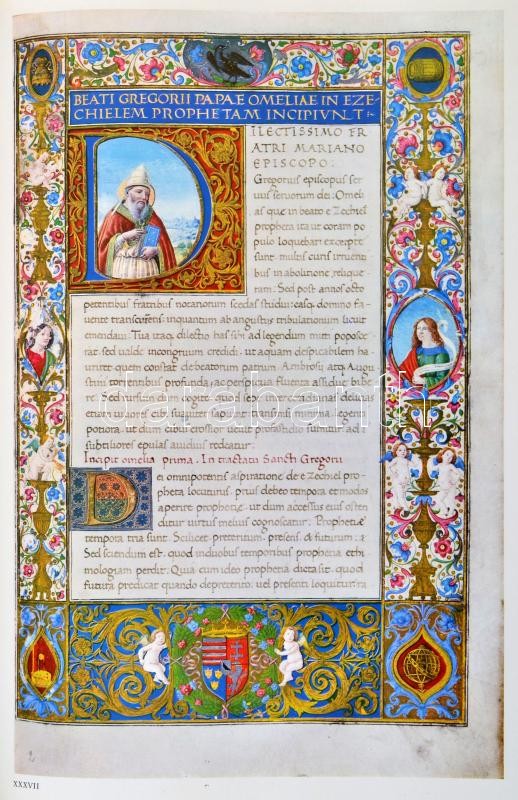 BEATI GREGORII PAPAE OMELIAE IN EZE-
CHIELEM PROPHETAM INCIPIVNT:
DILECTISSIMO FR
ATRI MARIANO
EPISCOPO:
Gregorius episcopus ser
uus seruorum dei: Omeli
as quę in beato eZechiel
propheta ita ut coram po
pulo loquebar excepte
sunt: multis curis irruenti
bus in abolitione, relique-
ram: Sed post annos octo
petentibus fratribus notariorum scedas studui: easq, domino fa-
uente transcurrens: inquantum ab angustiis tribulationum licuit
emendaui. Tua itaq, dilectio has sibi ad legendum mitti poposce-
rat: sed ualde incongruum credidi: ut aquam despicabilem ha-
uriret: quę constat de beatorum patrum. Ambrosii atq, Augu
stini torrentibus profunda, ac perspicua fluenta assidue bibe-
re. Sed rursus dum cogito quod sepe inter cotidianas delicias
etiam uiliores cibi suauiter sapiunt: transmisi minima legenti
potiora. ut dum cibus grossior uelut pro fastidio sumitur ad
subtiliores epulas auidius redeatur:
Incipit omelia prima. In tractatu Sancti Gregorii
Dei omnipotentis aspiratione de eZechiel pro-
pheta locuturus. prius debeo tempora et modos
aperire prophetię. ut dum accessus eius osten
ditur uirtus melius cognoscatur. Prophetię
tempora tria sunt. Scilicet preteritum. presens & futurum:
Sed sciendum est. quod in duobus temporibus prophetia ethi-
mologiam perdit. Quia cum ideo prophetia dicta sit. quod
futura predicat. quando de preterito. uel presenti loquitur. ra
darabanth
XXXVII